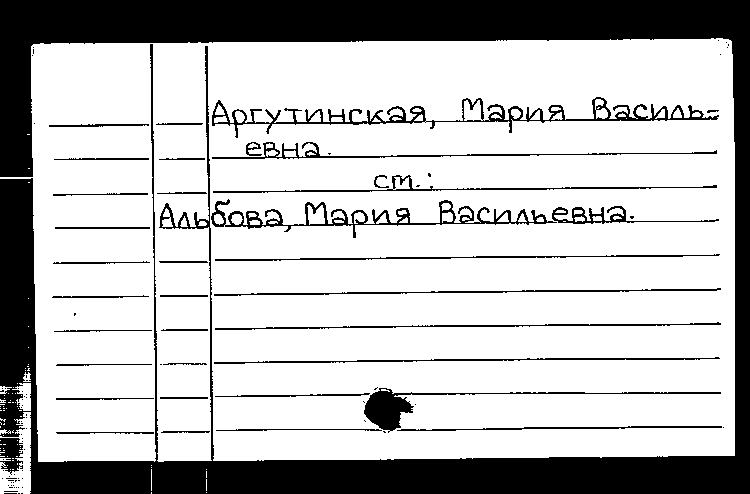 Аргутинская, Мария Василь=
евна.
ст.:
Альбова, Мария Васильевна.